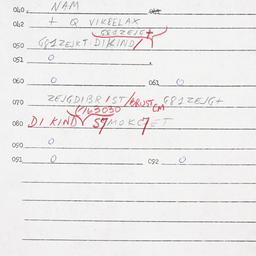 040. NAM
042 + Q VIKEELAX
G81ZEJG+
050 G81ZEJKT DIKIND/
051 O
060 O 061 O
070 ZEJGDIBRIST/BRUST G81ZEJG+
M63030 CM
080 DIKIND S7MOKC7ET
090 O
091 O 092 O